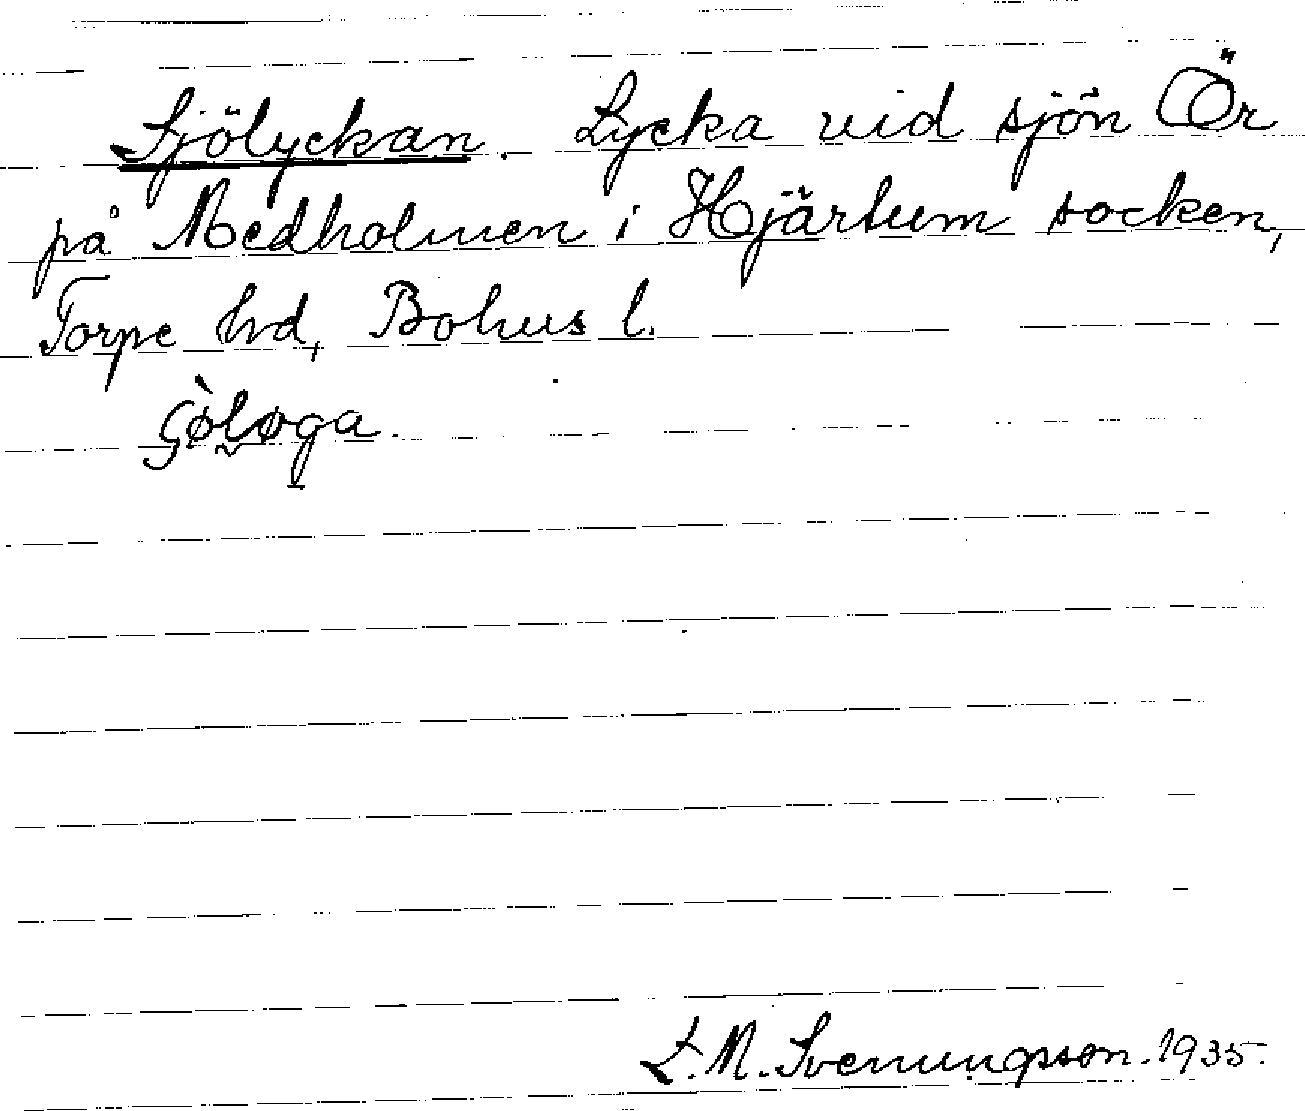 Sjölyckan. Lycka vid sjön Ör
på Medholmen i Hjärtum socken,
Torpe hd, Bohus l.
çø̀løga.
L. M. Svenungsson. 1935.